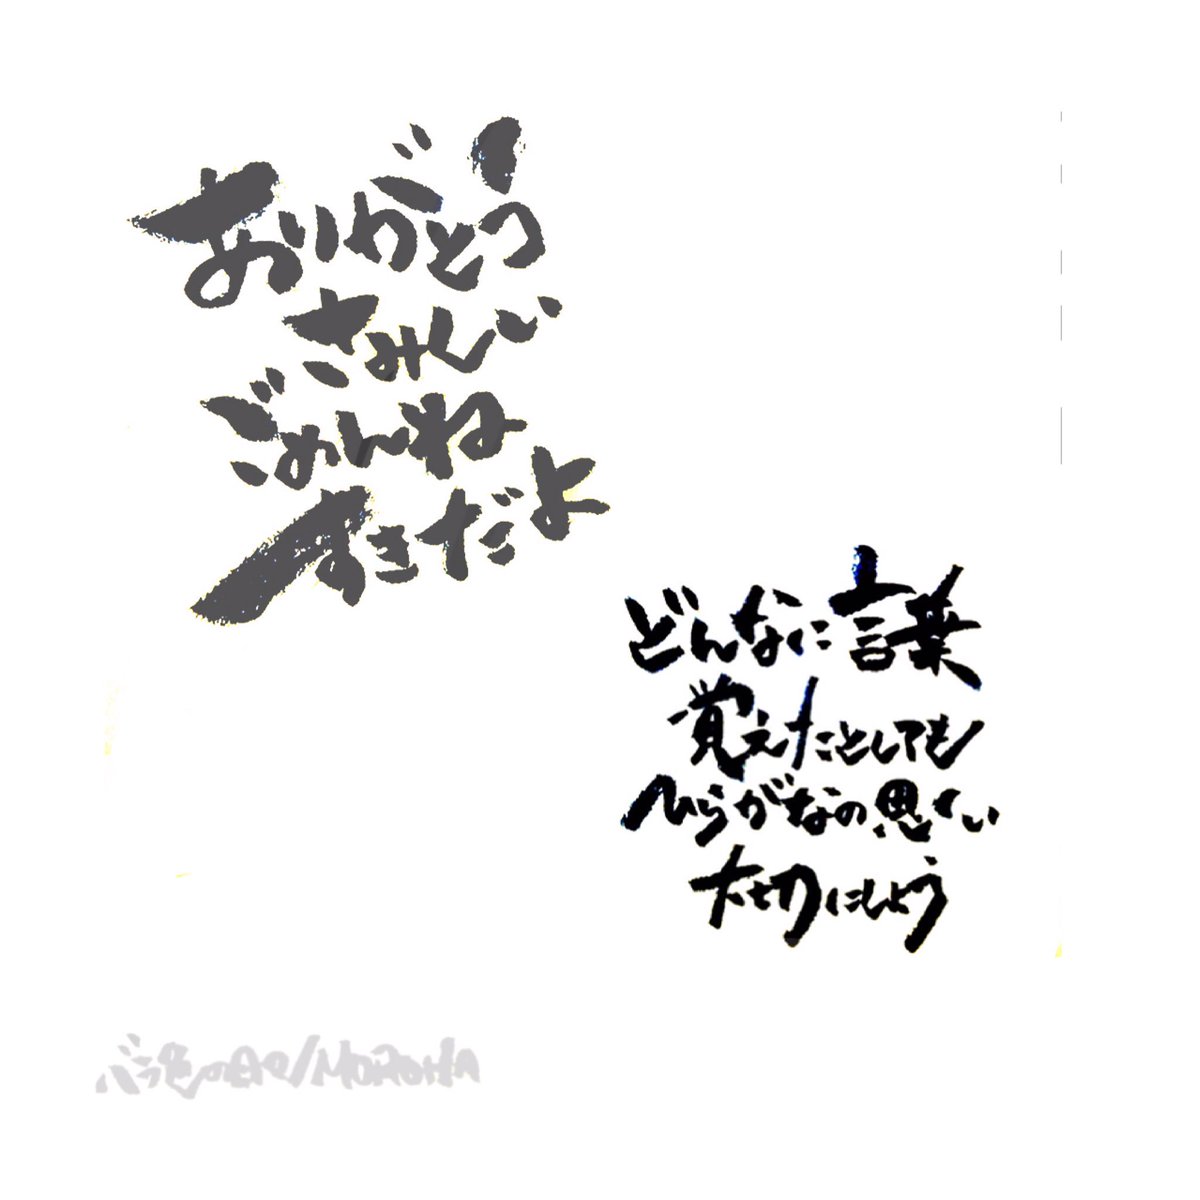 ありがとう
さみしい
ごめんね
すきだよ
どんなに言葉
覚えたとしても
ひらがなの思い
大切にしよう
バラ色の日々/MOROHA